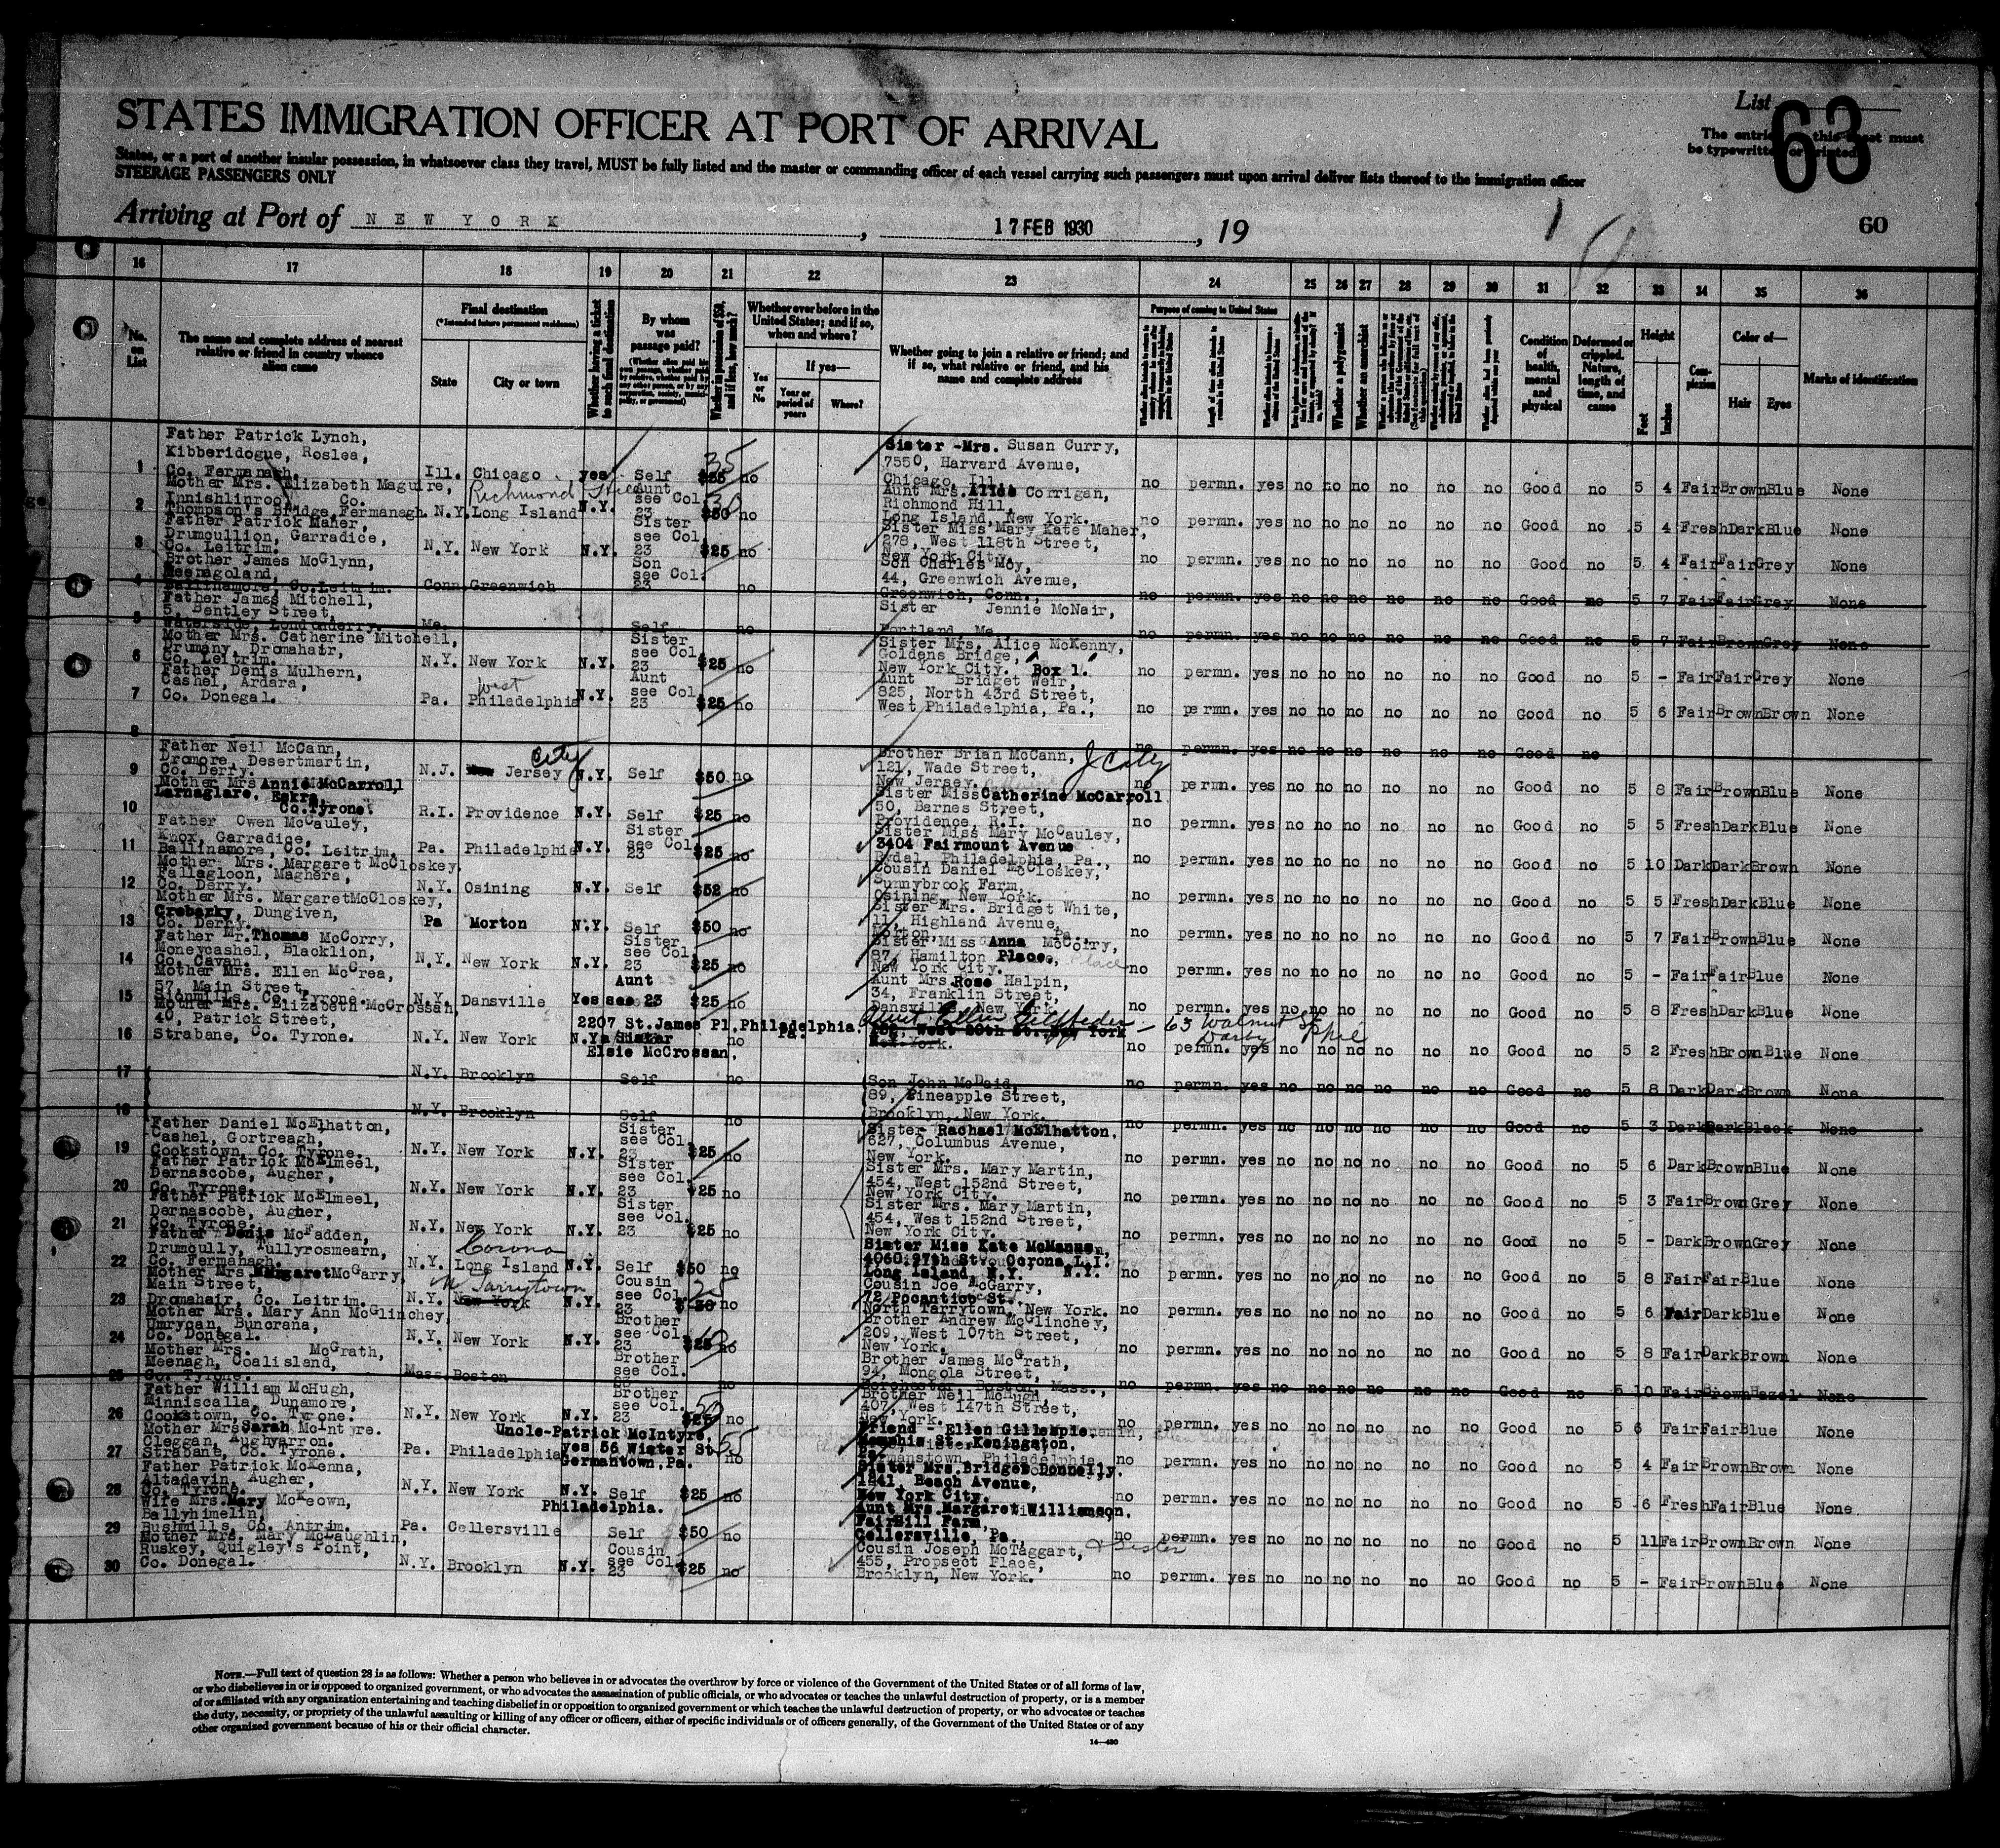 STATES IMMIGRATION OFFICER AT PORT OF ARRIVAL
List 63
The entries this sheet must
be typewritten or printed
States, or a port of another insular possession, in whatsoever class they travel, MUST be fully listed and the master or commanding officer of each vessel carrying such passengers must upon arrival deliver lists thereof to the immigration officer
STEERAGE PASSENGERS ONLY
Arriving at Port of NEW YORK, 17 FEB 1930, 19
60
16 17 18 19 20 21 22 23 24 25 26 27 28 29 30 31 32 33 34 35 36
No. on List
The name and complete address of nearest relative or friend in country whence alien came
Final destination
(*Intended future permanent residence)
State
City or town
Whether having a ticket to such final destination
By whom was passage paid?
Whether in possession of $50, and if less, how much?
Whether ever before in the United States; and if so, when and where?
Yes or No
If yes—
Year or period of years
Where?
Whether going to join a relative or friend; and if so, what relative or friend, and his name and complete address
Purpose of coming to United States
Whether a polygamist
Whether an anarchist
Condition of health, mental and physical
Deformed or crippled. Nature, length of time, and cause
Height
Feet
Inches
Complexion
Color of—
Hair
Eyes
Marks of identification
1 Father Patrick Lynch, Kibberidogue, Roslea, Co. Fermanagh. Ill. Chicago yes Self $25 35 no Sister -Mrs. Susan Curry, 7550, Harvard Avenue, Chicago, Ill. no permn. yes no no no no no no Good no 5 4 Fair Brown Blue None
2 Mother Mrs. Elizabeth Maguire, Innishlinroo, Co. Thompson's Bridge, Fermanagh. N.Y. Long Island Richmond Hill N.Y. Aunt see Col. 23 $50 no Aunt Mrs. Alice Corrigan, Richmond Hill, Long Island, New York. no permn. yes no no no no no no Good no 5 4 Fresh Dark Blue None
3 Father Patrick Maher, Drumcullion, Garradice, Co. Leitrim. N.Y. New York N.Y. Sister see Col. 23 $25 no Sister Miss Mary Kate Maher, 278, West 118th Street, New York City. no permn. yes no no no no no no Good no 5 4 Fair Fair Grey None
4 Brother James McGlynn, Meenagoland, Co. Leitrim. Conn Greenwich Son see Col. 23 no Son Charles McCoy, 44, Greenwich Avenue, Greenwich, Conn., no permn. yes no no no no no no Good no 5 7 Fair Fair Grey None
5 Father James Mitchell, 5, Bentley Street, Waterside, Londonderry. Me. Self no Sister Jennie McNair, Portland, Me. no permn. yes no no no no no no Good no 5 7 Fair Brown Grey None
6 Mother Mrs. Catherine Mitchell, Crumany, Dromahair, Co. Leitrim. N.Y. New York N.Y. Sister see Col. 23 $25 no Sister Mrs. Alice McKenny, Goldens Bridge, New York City. Box 1. no permn. yes no no no no no no Good no 5 - Fair Fair Grey None
7 Father Denis Mulhern, Cashel, Ardara, Co. Donegal. Pa. West Philadelphia N.Y. Aunt see Col. 23 $25 no Aunt Bridget Weir, 825, North 43rd Street, West Philadelphia, Pa., no permn. yes no no no no no no Good no 5 6 Fair Brown Brown None
8 no permn. yes no no no no no no Good no
9 Father Neil McCann, Dromore, Desertmartin, Co. Derry. N.J. New Jersey City N.Y. Self $50 no Brother Brian McCann, 121, Wade Street, New Jersey. J City no permn. yes no no no no no no Good no 5 8 Fair Brown Blue None
10 Mother Mrs Annie McCarroll Larnaglare, Eskra, Co. Tyrone. R.I. Providence N.Y. Self $25 no Sister Miss Catherine McCarroll 50, Barnes Street, Providence, R.I. no permn. yes no no no no no no Good no 5 5 Fresh Dark Blue None
11 Father Owen McCauley, Knox, Garradice, Ballinamore, Co. Leitrim. Pa. Philadelphia N.Y. Sister see Col. 23 $25 no Sister Miss Mary McCauley, 3404 Fairmount Avenue Rydal, Philadelphia, Pa., no permn. yes no no no no no no Good no 5 10 Dark Dark Brown None
12 Mother Mrs. Margaret McCloskey, Fallagloon, Maghera, Co. Derry. N.Y. Osining N.Y. Self $52 no Cousin Daniel McCloskey, Sunnybrook Farm, Osining, New York. no permn. yes no no no no no no Good no 5 5 Fresh Dark Blue None
13 Mother Mrs. Margaret McCloskey, Crebarky, Dungiven, Co. Derry. Pa Morton N.Y. Self $50 no Sister Mrs. Bridget White, 11, Highland Avenue, Morton, Pa. no permn. yes no no no no no no Good no 5 7 Fair Brown Blue None
14 Father Mr. Thomas McCorry, Moneycashel, Blacklion, Co. Cavan. N.Y. New York N.Y. Sister see Col. 23 $25 no Sister Miss Anna McCorry, 87, Hamilton Place, New York City. no permn. yes no no no no no no Good no 5 - Fair Fair Blue None
15 Mother Mrs. Ellen McCrea, 57, Main Street, Sionmills, Co. Tyrone. N.Y. Dansville Yes Aunt see 23 $25 no Aunt Mrs. Rose Halpin, 34, Franklin Street, Dansville, New York. no permn. yes no no no no no no Good no 5 8 Fresh Dark Blue None
16 Mother Mrs. Elizabeth McCrossan, 40, Patrick Street, Strabane, Co. Tyrone. N.Y. New York N.Y. 2207 St. James Pl. Philadelphia. Pa. Sister Elsie McCrossan. no 63 Walnut St Darby Phil no permn. yes no no no no no no Good no 5 2 Fresh Brown Blue None
17 N.Y. Brooklyn Self no Son John McDaid, 89, Pineapple Street, Brooklyn, New York. no permn. yes no no no no no no Good no 5 8 Dark Dark Brown None
18 N.Y. Brooklyn Self no no permn. yes no no no no no no Good no 5 3 Dark Dark Black None
19 Father Daniel McElhatton, Cashel, Gortreagh, Cookstown, Co. Tyrone. N.Y. New York N.Y. Sister see Col. 23 $25 no Sister Rachael McElhatton. 627, Columbus Avenue, New York. no permn. yes no no no no no no Good no 5 6 Dark Brown Blue None
20 Father Patrick McElmeel, Dernascobe, Augher, Co. Tyrone. N.Y. New York N.Y. Sister see Col. 23 $25 no Sister Mrs. Mary Martin, 454, West 152nd Street, New York City. no permn. yes no no no no no no Good no 5 3 Fair Brown Grey None
21 Father Patrick McElmeel, Dernascobe, Augher, Co. Tyrone. N.Y. New York N.Y. Sister see Col. 23 $25 no Sister Mrs. Mary Martin, 454, West 152nd Street, New York City. no permn. yes no no no no no no Good no 5 - Dark Brown Grey None
22 Father Denis McFadden, Drumcully, Tullyrosmearn, Co. Fermanagh. N.Y. Corona Long Island N.Y. Self $50 no Sister Miss Kate McManus, Corona L.I. Long Island, N.Y. no permn. yes no no no no no no Good no 5 8 Fair Fair Blue None
23 Mother Mrs. Margaret McGarry, Main Street, Dromahair, Co. Leitrim. N.Y. New York N Tarrytown N.Y. Cousin see Col. 23 25 no Cousin Joe McGarry, 72 Pocantico St. North Tarrytown, New York. no permn. yes no no no no no no Good no 5 6 Fair Dark Blue None
24 Mother Mrs. Mary Ann McGlinchey, Umrycan, Buncrana, Co. Donegal. N.Y. New York N.Y. Brother see Col. 23 $25 no Brother Andrew McGlinchey, 209, West 107th Street, New York. no permn. yes no no no no no no Good no 5 8 Fair Dark Brown None
25 Mother Mrs. McGrath, Meenagh, Coalisland, Co. Tyrone. Mass Boston Brother see Col. 23 no Brother James McGrath, 94, Mongola Street, Dorchester, Boston, Mass., no permn. yes no no no no no no Good no 5 10 Fair Brown Hazel None
26 Father William McHugh, Minniscalla, Dunamore, Cookstown, Co. Tyrone. N.Y. New York N.Y. Brother see Col. 23 $25 50 no Brother Neil McHugh, 407, West 147th Street, New York. no permn. yes no no no no no no Good no 5 6 Fair Fair Blue None
27 Mother Mrs Sarah McIntyre. Cleggan, Aughyarron. Strabane, Co. Tyrone. Pa. Philadelphia Uncle-Patrick McIntyre, yes 56 Wister St. Germantown, Pa. 55 no Friend - Ellen Gillespie. Memphis St. Kenington. no permn. yes no no no no no no Good no 5 4 Fair Brown Brown None
28 Father Patrick McKenna, Altadavin, Augher, Co. Tyrone. N.Y. New York N.Y. Self $25 no Sister Mrs. Bridget Donnelly. 1241, Beach Avenue, New York City. no permn. yes no no no no no no Good no 5 6 Fresh Fair Blue None
29 Wife Mrs. Mary McKeown, Ballyhimelin, Bushmills, Co. Antrim. Pa. Cellersville Philadelphia. Self $50 no Aunt Mrs Margaret Williamson. Fairhill Farm, Cellersville, Pa., no permn. yes no no no no no no Good no 5 11 Fair Brown Brown None
30 Mother Mrs. Mary McLaughlin, Ruskey, Quigley's Point, Co. Donegal. N.Y. Brooklyn N.Y. Cousin see Col. 23 $25 no Cousin Joseph McTaggart, Sister 455, Propsect Place, Brooklyn, New York. no permn. yes no no no no no no Good no 5 - Fair Brown Blue None
NOTE.—Full text of question 28 is as follows: Whether a person who believes in or advocates the overthrow by force or violence of the Government of the United States or of all forms of law,
or who disbelieves in or is opposed to organized government, or who advocates the assassination of public officials, or who advocates or teaches the unlawful destruction of property, or is a member
of or affiliated with any organization entertaining and teaching disbelief in or opposition to organized government or which teaches the unlawful destruction of property, or who advocates or teaches
the duty, necessity, or propriety of the unlawful assaulting or killing of any officer or officers, either of specific individuals or of officers generally, of the Government of the United States or of any
other organized government because of his or their official character.
14—430